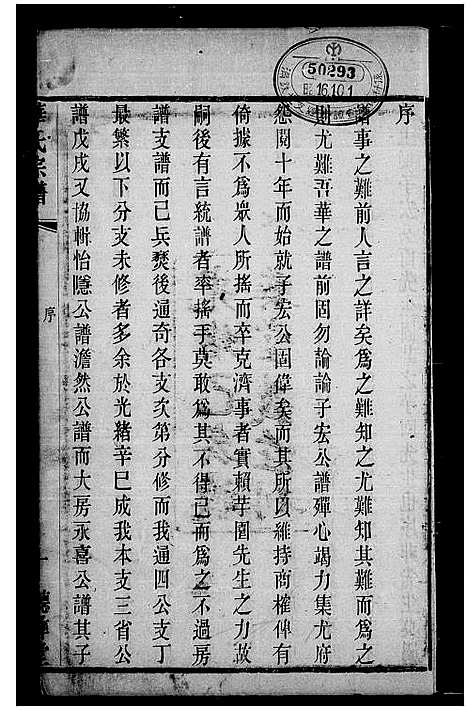 序
譜事之難前人言之詳矣爲之難知之尤難知其難而爲之
則尤難吾華之譜前固勿論論子宏公譜殫心竭力集尤府
怨閱十年而始就子宏公固偉矣而其所以維持商榷俾有
倚據不爲眾人所搖而卒克濟事者實賴芋園先生之力故
嗣後有言統譜者率搖手莫敢爲其不得已而爲之不過房
譜支譜而已兵燹後通奇各支次第分修而我通四公支丁
最繁以下分支未修者多余於光緒辛巳成我本支三省公
譜戊戌又協輯怡隱公譜澹然公譜而大房永喜公譜其子
華氏宗譜
序
一
50293
16.10.1